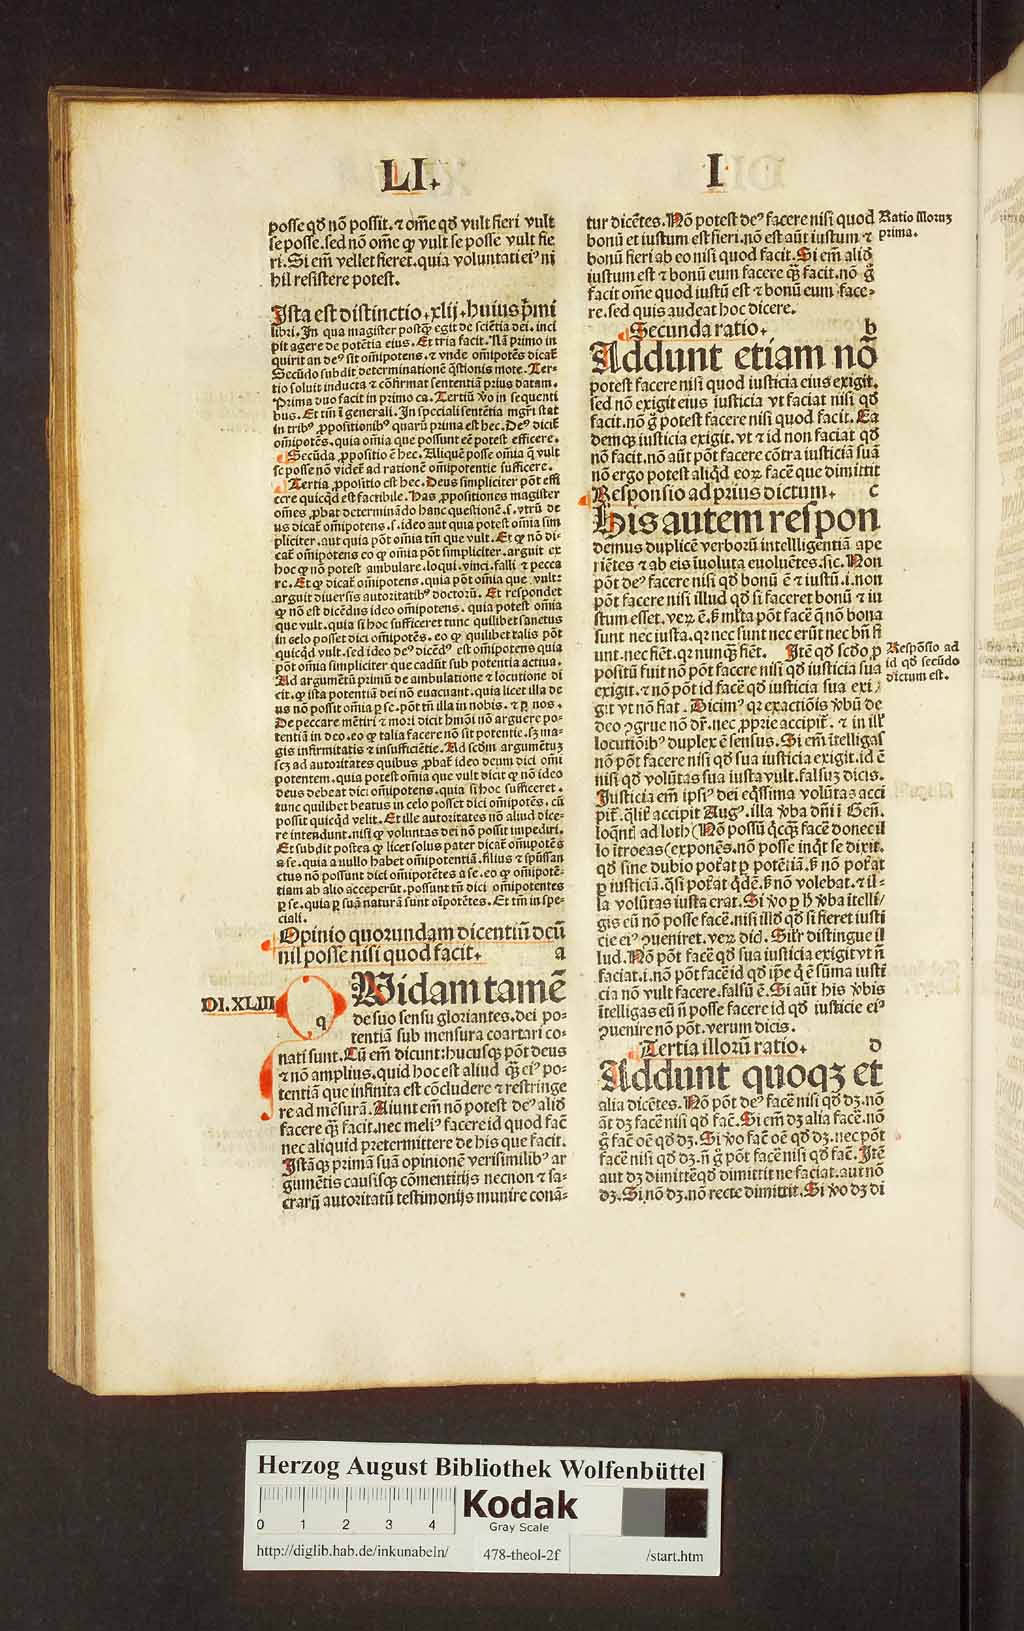 LI.
I
posse qd̄ nō possit. ⁊ om̄e qd̄ vult fieri vult
se posse. sed nō om̄e qƺ vult se posse vult fie
ri. Si em̄ vellet fieret. quia voluntati ei⁹ ni
hil resistere potest.
Ista est distinctio .xlij. huius p̄mi
libri. In qua magister postq̄ȝ egit de sciētia dei. inci
pit agere de potētia eius. Et tria facit. Nā primo in
quirit an de⁹ sit om̄ipotens. ⁊ vnde om̄ipotēs dicat̄
Secūdo subdit determinationē q̄stionis mote. Ter-
tio soluit inducta ⁊ cōfirmat sententiā prius datam.
Prima duo facit in primo ca. Tertiū ꝟo in sequenti
bus. Et tm̄ ī generali. In speciali sentētia mgr̄i stat
in trib⁹ ꝓpositionib⁹ quarū prima est hec. De⁹ dicit̄
om̄ipotēs. quia om̄ia que possunt eē potest efficere.
Secūda ꝓpositio ē hec. Aliquē posse om̄ia q̄ vult
se posse nō videt̄ ad rationē om̄ipotentie sufficere.
Tertia ꝓpositio est hec. Deus simpliciter pōt effi
cere quicqd̄ est factibile. Has ꝓpositiones magister
om̄es ꝓbat determinādo hanc questionē. s. vtrū de
us dicat̄ om̄ipotens. s. ideo aut quia potest om̄ia sim
pliciter. aut quia pōt om̄ia tm̄ que vult. Et qƺ nō di-
cat̄ om̄ipotens eo qƺ om̄ia pōt simpliciter. arguit ex
hoc qƺ nō potest ambulare. loqui. vinci. falli ⁊ pecca
re. Et qƺ dicat̄ om̄ipotens. quia pōt om̄ia que vult:
arguit diuersis autoritatib⁹ doctorū. Et respondet
qƺ nō est dicēdus ideo om̄ipotens. quia potest om̄ia
que vult. quia si hoc sufficeret tunc quilibet sanctus
in celo posset dici om̄ipotēs. eo qƺ quilibet talis pōt
quicqd̄ vult. sed ideo de⁹ dicēd⁹ est om̄ipotens quia
pōt om̄ia simpliciter que cadūt sub potentia actiua.
Ad argumētū primū de ambulatione ⁊ locutione di
cit. qƺ ista potentiā dei nō euacuant. quia licet illa de
us nō possit om̄ia ꝑ se. pōt tn̄ illa in nobis. ⁊ ꝑ nos.
De peccare mētiri ⁊ mori dicit hm̄oi nō arguere po-
tentiā in deo. eo qƺ talia facere nō sit potentie. sȝ ma-
gis infirmitatis ⁊ insufficiētie. Ad scd̄m argumētuȝ
scȝ ad autoritates quibus ꝓbat̄ ideo deum dici om̄i
potentem. quia potest om̄ia que vult dicit qƺ nō ideo
deus debeat dici om̄ipotens. quia si hoc sufficeret.
tunc quilibet beatus in celo posset dici om̄ipotēs. cū
possit quicqd̄ velit. Et ille autoritates nō aliud dice-
re intendunt. nisi qƺ voluntas dei nō possit impediri.
Et subdit postea qƺ licet solus pater dicat̄ om̄ipotēs
a se. quia a nullo habet om̄ipotentiā. filius ⁊ spūssan
ctus nō possunt dici om̄ipotētes a se. eo qƺ om̄ipotē-
tiam ab alio acceperūt. possunt tn̄ dici om̄ipotentes
ꝑ se. quia ꝑ suā naturā sunt oīpotētes. Et tm̄ in spe-
ciali.
Opinio quorundam dicentiū deū
nil posse nisi quod facit. a
DI. XLIII
q
Widam tamē
de suo sensu gloriantes. dei po-
tentiā sub mensura coartari co-
nati sunt. Cū em̄ dicunt: hucusqƺ pōt deus
⁊ nō amplius. quid hoc est aliud q̄ȝ ei⁹ po-
tentiā que infinita est cōcludere ⁊ restringe
re ad mēsurā. Aiunt em̄ nō potest de⁹ aliд̄
facere q̄ȝ facit. nec meli⁹ facere id quod fac̄
nec aliquid pretermittere de his que facit.
Istāqƺ primā suā opinionē verisimilib⁹ ar
gumētis causisqƺ cōmentitijs necnon ⁊ sa-
crarū autoritatū testimonijs munire conā-
tur dicētes. Nō potest de⁹ facere nisi quod
bonū et iustum est fieri. nō est aūt iustum ⁊
bonū fieri ab eo nisi quod facit. Si em̄ aliд̄
iustum est ⁊ bonū eum facere q̄ȝ facit. nō ḡ
facit om̄e quod iustū est ⁊ bonū eum face-
re. sed quis audeat hoc dicere.
Ratio illoruȝ
prima.
Secunda ratio. b
Addunt etiam nō
potest facere nisi quod iusticia eius exigit.
sed nō exigit eius iusticia vt faciat nisi qd̄
facit. nō ḡ potest facere nisi quod facit. Ea
demqƺ iusticia exigit. vt ⁊ id non faciat qd̄
nō facit. nō aūt pōt facere cōtra iusticiā suā
nō ergo potest aliqd̄ eoꝝ fac̄e que dimittit
Responsio ad prius dictum. c
His autem respon
demus duplicē verborū intellligentiā ape
riētes ⁊ ab eis īuoluta euoluētes. sic. Non
pōt de⁹ facere nisi qd̄ bonū ē ⁊ iustū. i. non
pōt facere nisi illud qd̄ si faceret bonū ⁊ iu
stum esset. veꝝ ē. s̄ ml̄ta pōt fac̄e q̄ nō bona
sunt nec iusta. qꝛ nec sunt nec erūt nec bn̄ fi
unt. nec fiēt. qꝛ nunq̄ȝ fiēt. Itē qd̄ scd̄o ꝓ
positū fuit nō pōt facere nisi qd̄ iusticia sua
exigit. ⁊ nō pōt id fac̄e qd̄ iusticia sua exi-
git vt nō fiat. Dicim⁹ qꝛ exactiōis ꝟbū de
deo ꝯgrue nō dr̄. nec ꝓprie accipit̄. ⁊ in ill̄
locutiōib⁹ duplex ē sensus. Si em̄ ītelligas
nō pōt facere nisi qd̄ sua iusticia exigit. id ē
nisi qd̄ volūtas sua iusta vult. falsuȝ dicis.
Iusticia em̄ ipsi⁹ dei eq̄ssima volūtas acci
pit̄. q̄lit̄ accipit Aug⁹. illa ꝟba dn̄i ī Gen̄.
loq̄nt̄ ad loth (Nō possū q̄cq̄ȝ fac̄e donec il
lo ītroeas (exponēs. nō posse inq̄t se dixit.
qd̄ sine dubio pot̄at ꝑ potētiā. s̄ nō pot̄at
ꝑ iusticiā. q̄si pot̄at q̄dē. s̄ nō volebat. ⁊ il-
la volūtas iusta erat. Si ꝟo ꝑ h̄ ꝟba ītelli-
gis eū nō posse fac̄e. nisi illd̄ qd̄ si fieret iusti
cie ei⁹ ꝯueniret. veꝝ dic̄. Sil̄r distingue il
lud. Nō pōt fac̄e qd̄ sua iusticia exigit vt n̄
faciat. i. nō pōt fac̄e id qd̄ ip̄e q̄ ē sūma iusti
cia nō vult facere. falsū ē. Si aūt his ꝟbis
ītelligas eū n̄ posse facere id qd̄ iusticie ei⁹
ꝯuenire nō pōt. verum dicis.
Respōsio ad
id qd̄ secūdo
dictum est.
Tertia illorū ratio. d
Addunt quoqȝ et
alia dicētes. Nō pōt de⁹ fac̄e nisi qd̄ dȝ. nō
āt dȝ fac̄e nisi qd̄ fac̄. Si em̄ dȝ alia fac̄e. nō
ḡ fac̄ oē qd̄ dȝ. Si ꝟo fac̄ oē qd̄ dȝ. nec pōt
fac̄e nisi qd̄ dȝ. n̄ ḡ pōt fac̄e nisi qd̄ fac̄. Itē
aut dȝ dimittē qd̄ dimittit ne faciat. aut nō
dȝ. Si nō dȝ. nō recte dimittit. Si ꝟo dȝ di
Herzog August Bibliothek Wolfenbüttel
0 1 2 3 4
Kodak
Gray Scale
http://diglib.hab.de/inkunabeln/ 478-theol-2f /start.htm